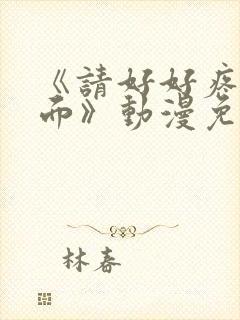 《請好好疼
而》動漫免
林春